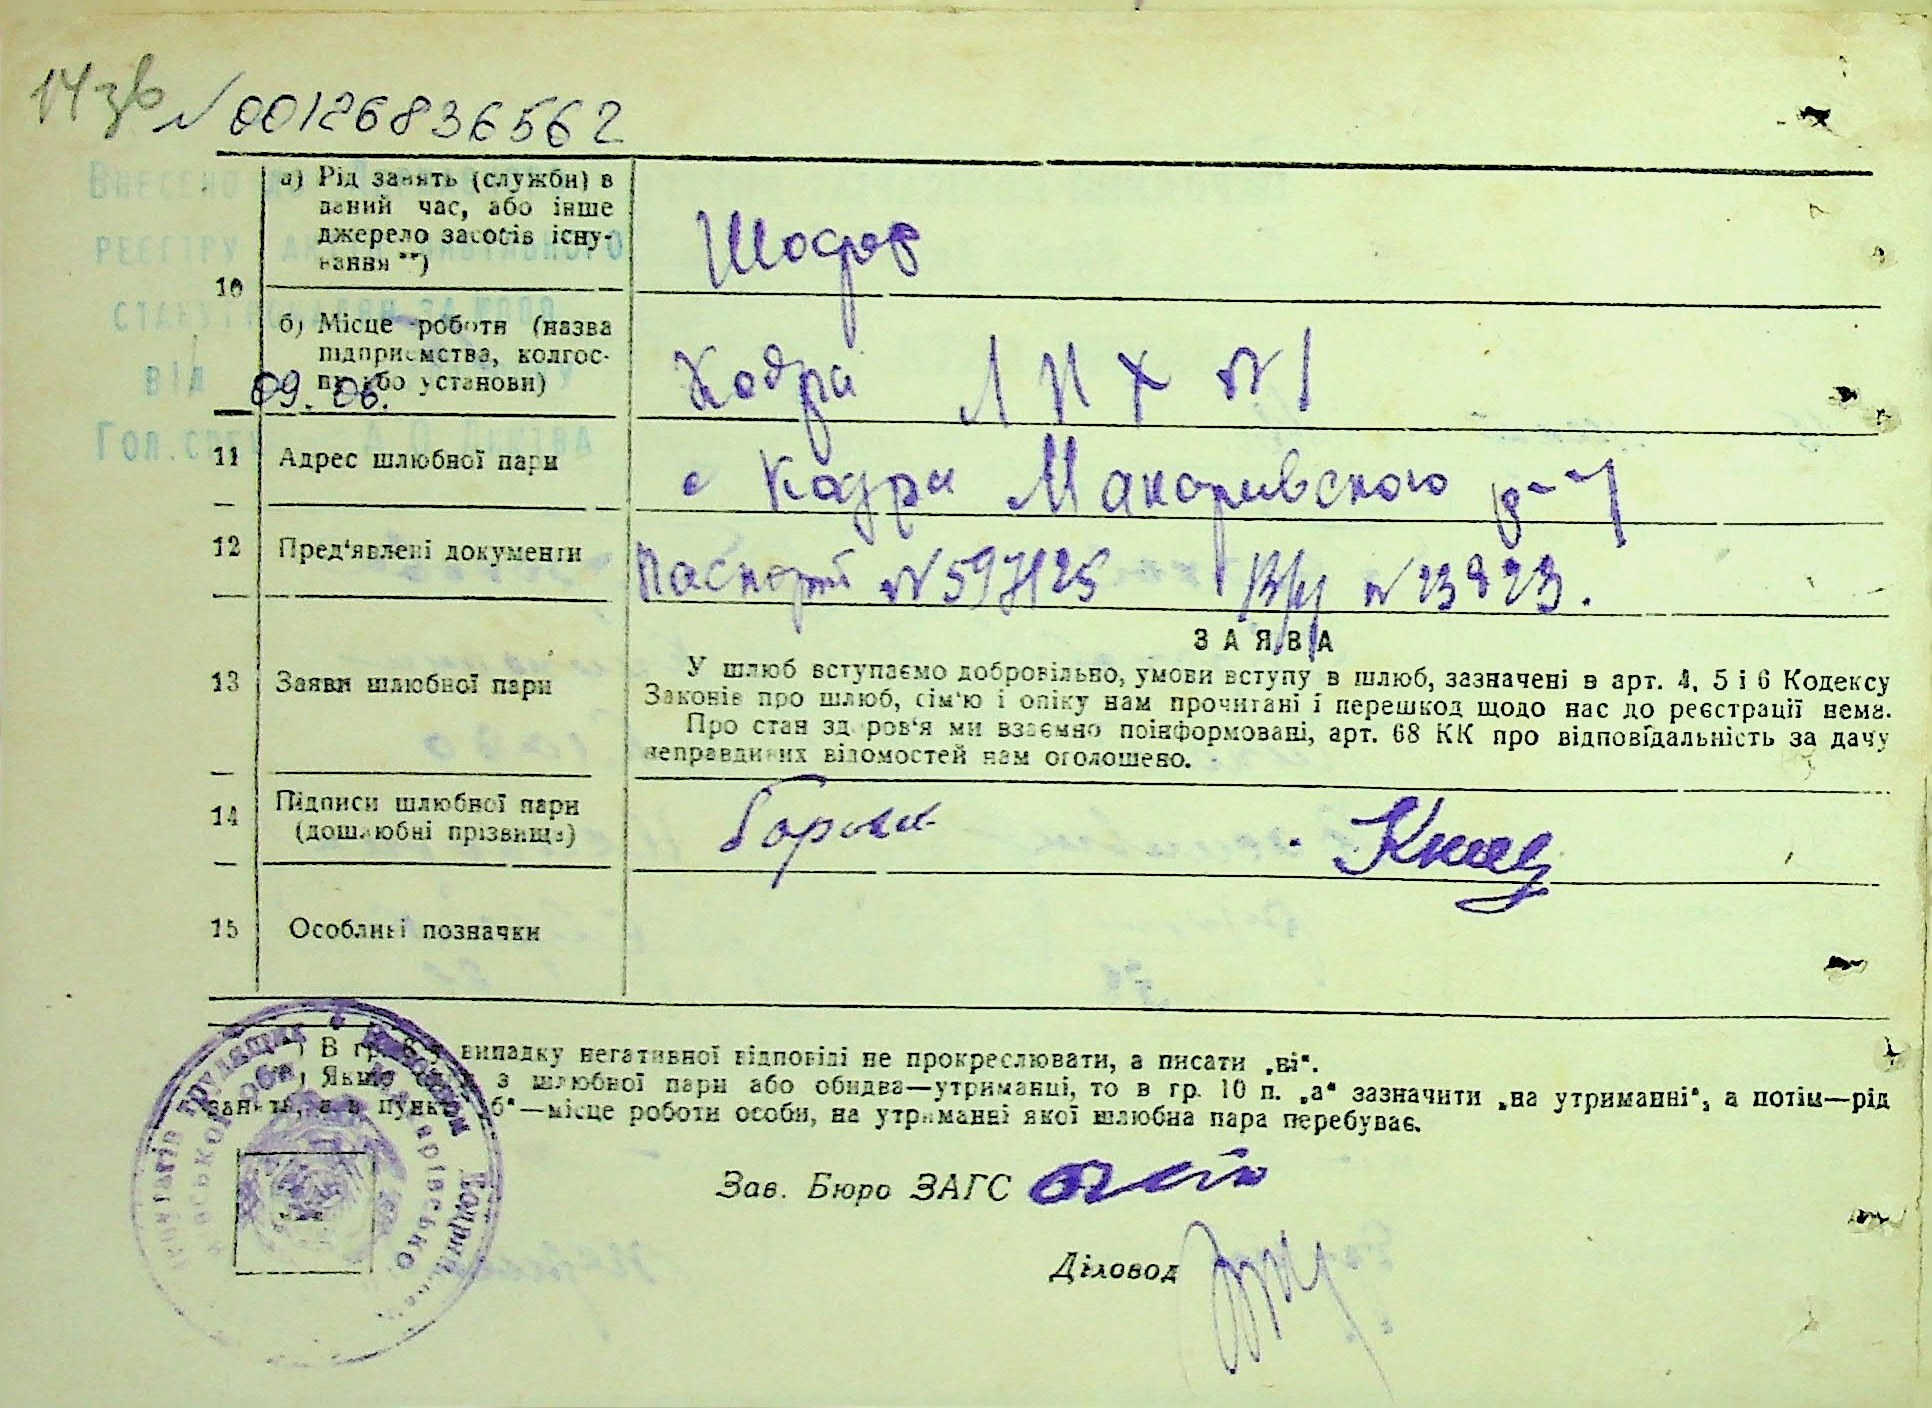 14 зв
№ 00126836562
10
а) Рід занять (служби) в
даний час, або інше
джерело засобів існу-
вання **)
Шофер
б) Місце роботи (назва
підприємства, колгос-
пу або установи)
Кодра ЛПХ №1
09. 06.
11 Адрес шлюбної пари
с Кодра Макарівського р-н
12 Пред'явлені документи
Паспорт №597125 В/б №23823.
13 Заяви шлюбної пари
ЗАЯВА
У шлюб вступаємо добровільно, умови вступу в шлюб, зазначені в арт. 4, 5 і 6 Кодексу
Законів про шлюб, сім'ю і опіку нам прочитані і перешкод щодо нас до реєстрації нема.
Про стан здоров'я ми взаємно поінформовані, арт. 68 КК про відповідальність за дачу
неправдивих відомостей нам оголошено.
14 Підписи шлюбної пари
(дошлюбні прізвища)
15 Особливі позначки
*) В гр. 8,9 випадку негативної відповіді не прокреслювати, а писати „ні“.
**) Якщо один з шлюбної пари або обидва—утриманці, то в гр. 10 п. „а“ зазначити „на утриманні“, а потім—рід
занять, а в пункті „б“—місце роботи особи, на утриманні якої шлюбна пара перебуває.
Зав. Бюро ЗАГС
Діловод